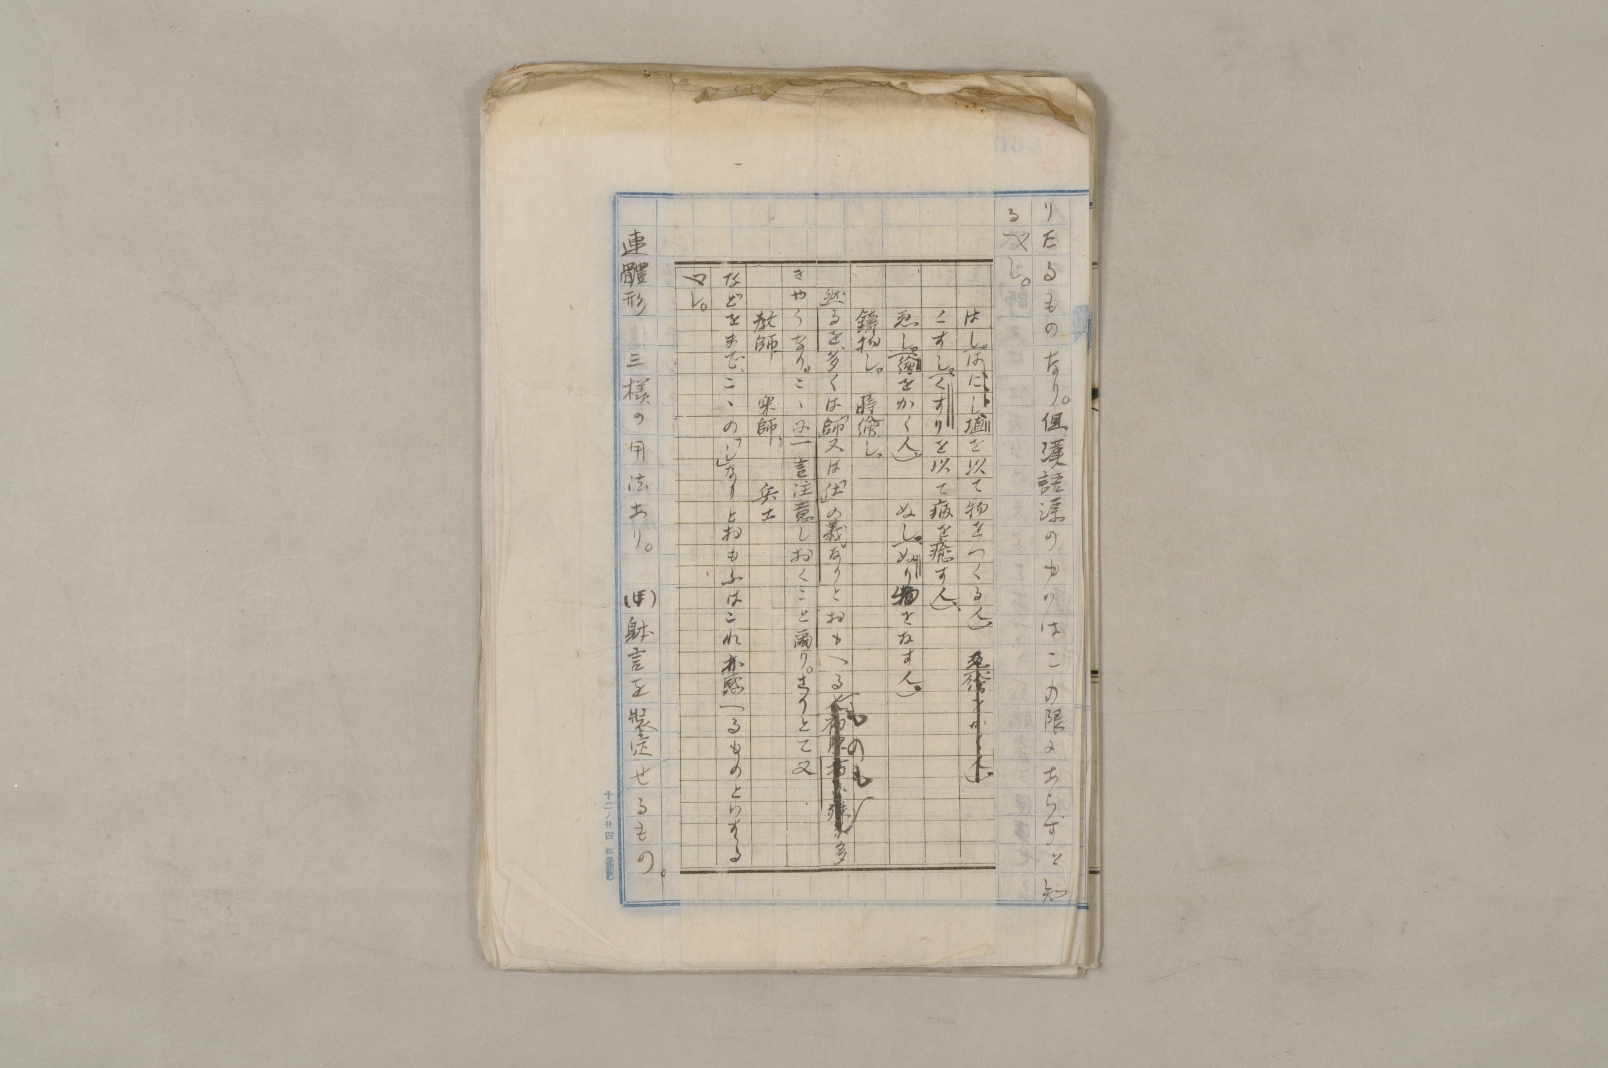 りたるものなり。但、漢語源のものはこの限にあらずと知
るべし。
はし。はにし(埴を以て物をつくる人)
くすし。(くすりを以て病を癒す人)
ゑし。(繪をかく人) ぬし。(ぬり物をなす人)
鑄物し。 蒔繪し。
然るを、多くは師又は仕の義なりとおもへるものも多
きやうなり。こゝに一言注意しおくこと爾り。さりとて又
教師、 樂師、 兵士
などをまで、こゝの「し」なりとおもふはこれ亦惑へるものといはざる
べし。
連體形 三様の用法あり。 (甲)躰言を裝定せるもの。
十二ノ廿四 松屋製